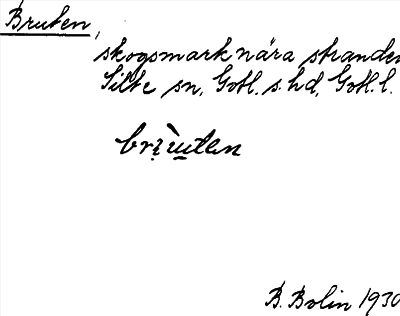 Bruten,
skogsmark nära stranden
Silte sn, Gotl. s. hd, Gotl. l.
brı̣̀u̠ten
B. Bolin 1930